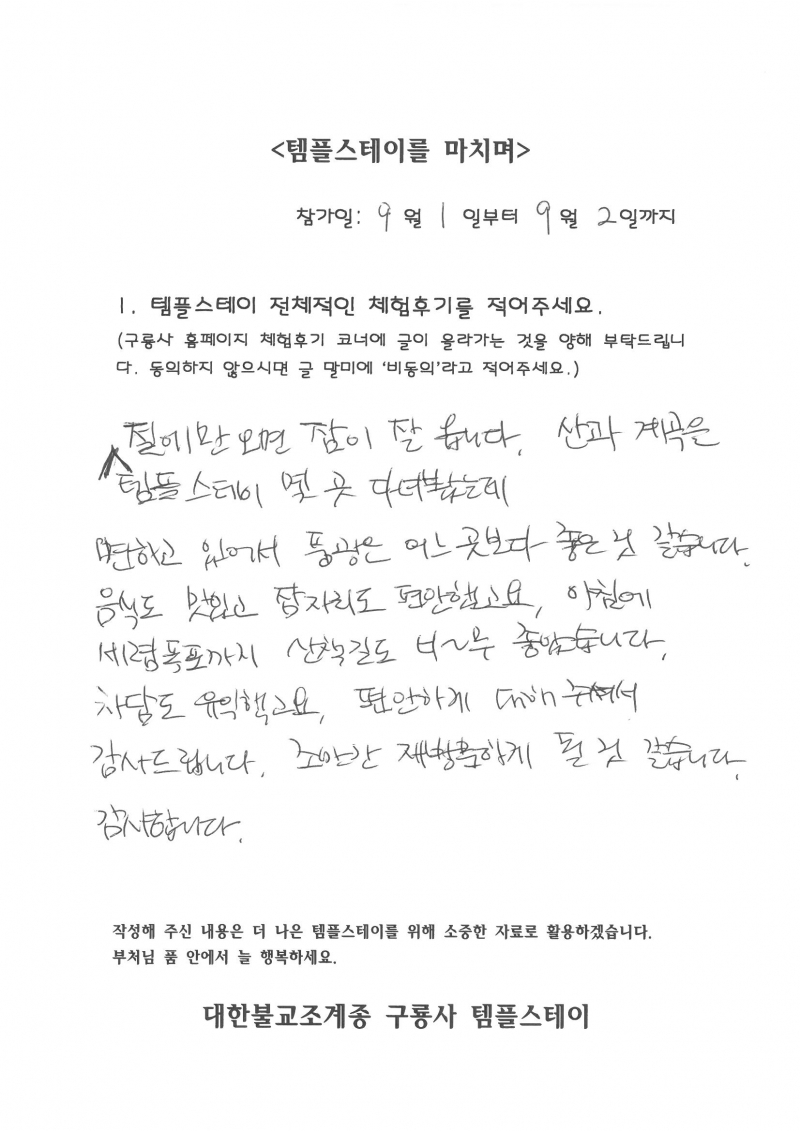 <템플스테이를 마치며>
참가일: 9 월 1 일부터 9월 2일까지
1. 템플스테이 전체적인 체험후기를 적어주세요.
(구룡사 홈페이지 체험후기 코너에 글이 올라가는 것을 양해 부탁드립니
다. 동의하지 않으시면 글 말미에 '비동의'라고 적어주세요.)
절에만 오면 잠이 잘 옵니다. 산과 계곡을
템플스테이 몇 곳 다녀봤는데
면하고 있어서 풍광은 어느 곳보다 좋은 것 같습니다.
음식도 맛있고 잠자리도 편안했고요, 아침에
세렴폭포까지 산책길도 너~무 좋았습니다.
차담도 유익했고요, 편안하게 대해 주셔서
감사드립니다. 조만간 재방문하게 될 것 같습니다.
감사합니다.
작성해 주신 내용은 더 나은 템플스테이를 위해 소중한 자료로 활용하겠습니다.
부처님 품 안에서 늘 행복하세요.
대한불교조계종 구룡사 템플스테이